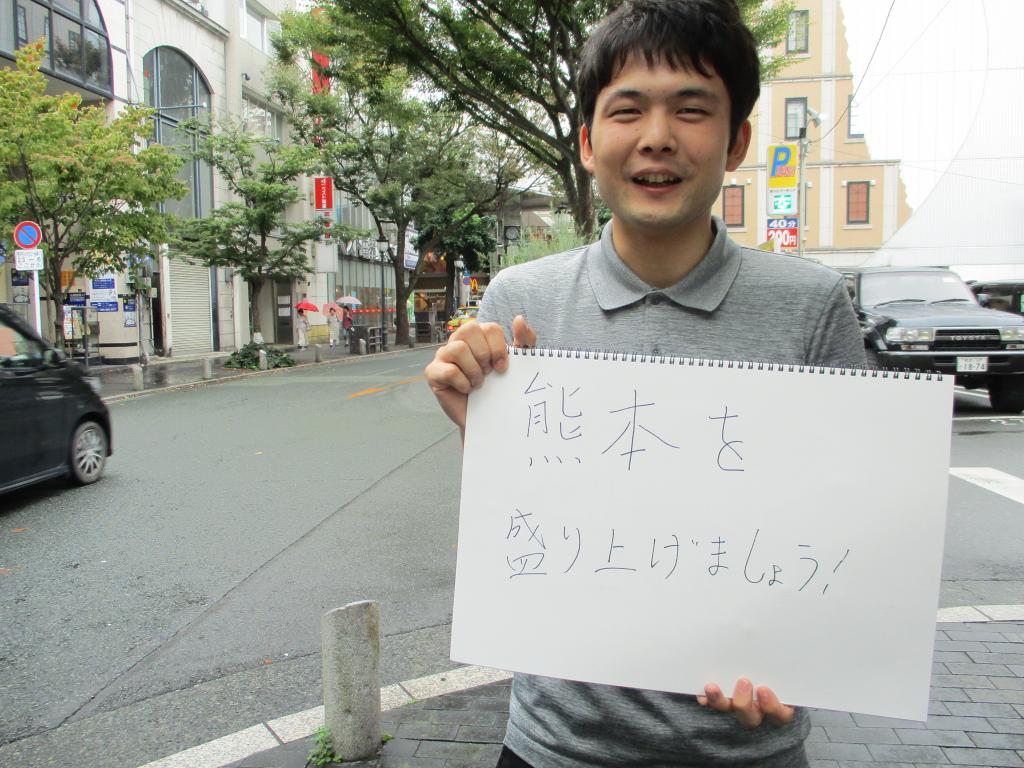 熊本を
盛り上げましょう!
P
40分
200円
TOYOTA
18-74